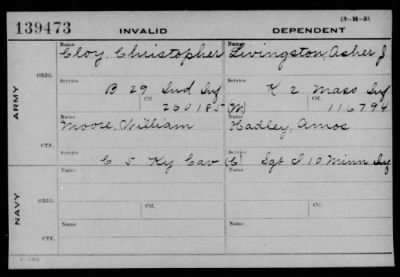 (3-M-3)
139473 INVALID DEPENDENT
ARMY
ORIG.
Name Cloy, Christopher Name Livingston, Asher J
Service B 29 Ind Inf Service K 2 Mass Inf
Ctf. 260185 (M) Ctf. 116794
CTF.
Name Moore, William Name Hadley, Amos
Service C 5 Ky Cav (C) Service Sgt I 10 Minn Inf
NAVY
ORIG.
Name Name
Ctf. Ctf.
CTF.
Name Name